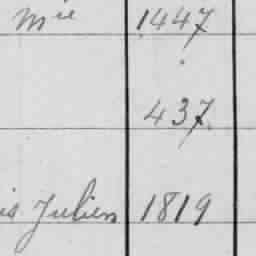 mie 1447
437.
is Julien 1819